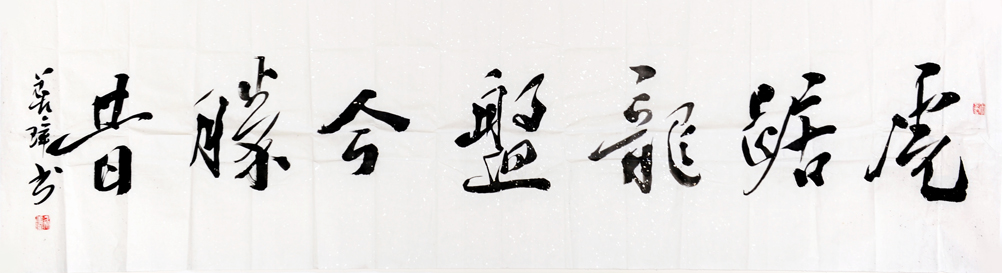 虎踞龍盤今勝昔
善璋书